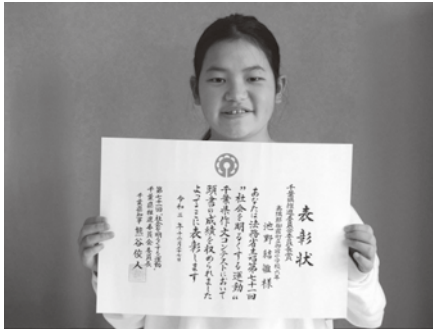 表彰状
千葉県推進委員会委員長賞
池野 結雛 様
あなたは法務省主唱第七十一回
“社会を明るくする運動”
千葉県作文コンテストにおいて
頭書の成績を収められました
よってここに表彰します
令和三年十二月
千葉県推進委員会委員長
千葉県知事 熊谷俊人